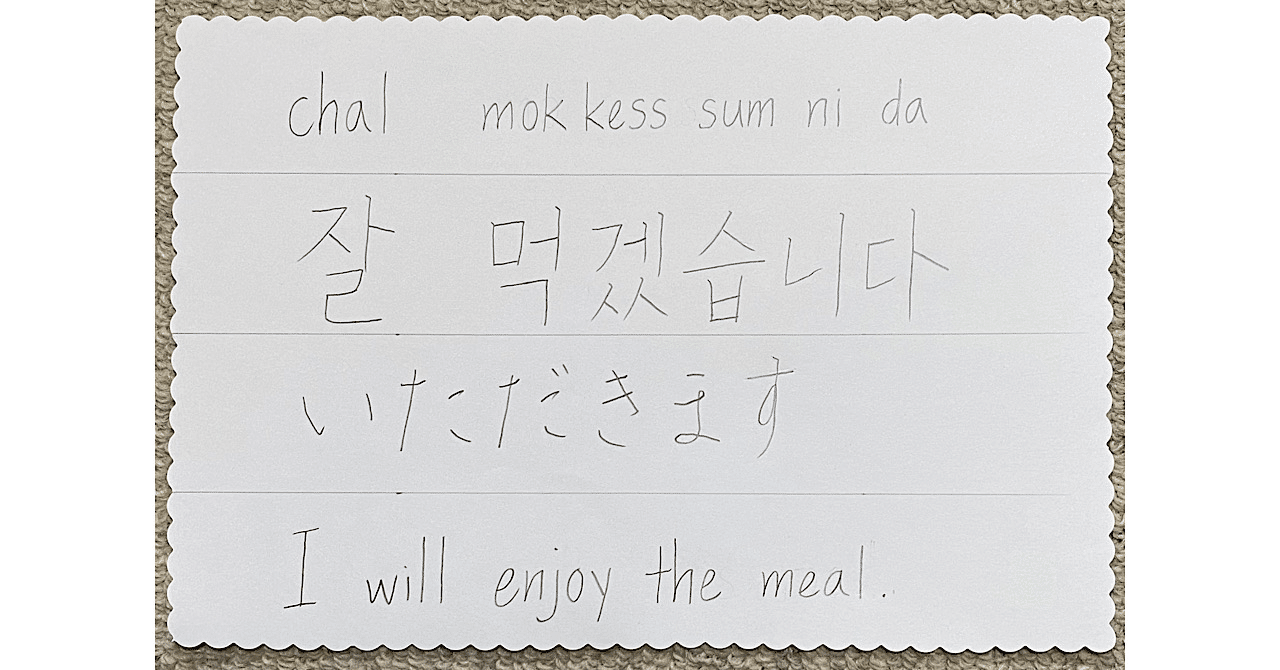 chal mok kess sum ni da
잘 먹겠습니다
いただきます
I will enjoy the meal.